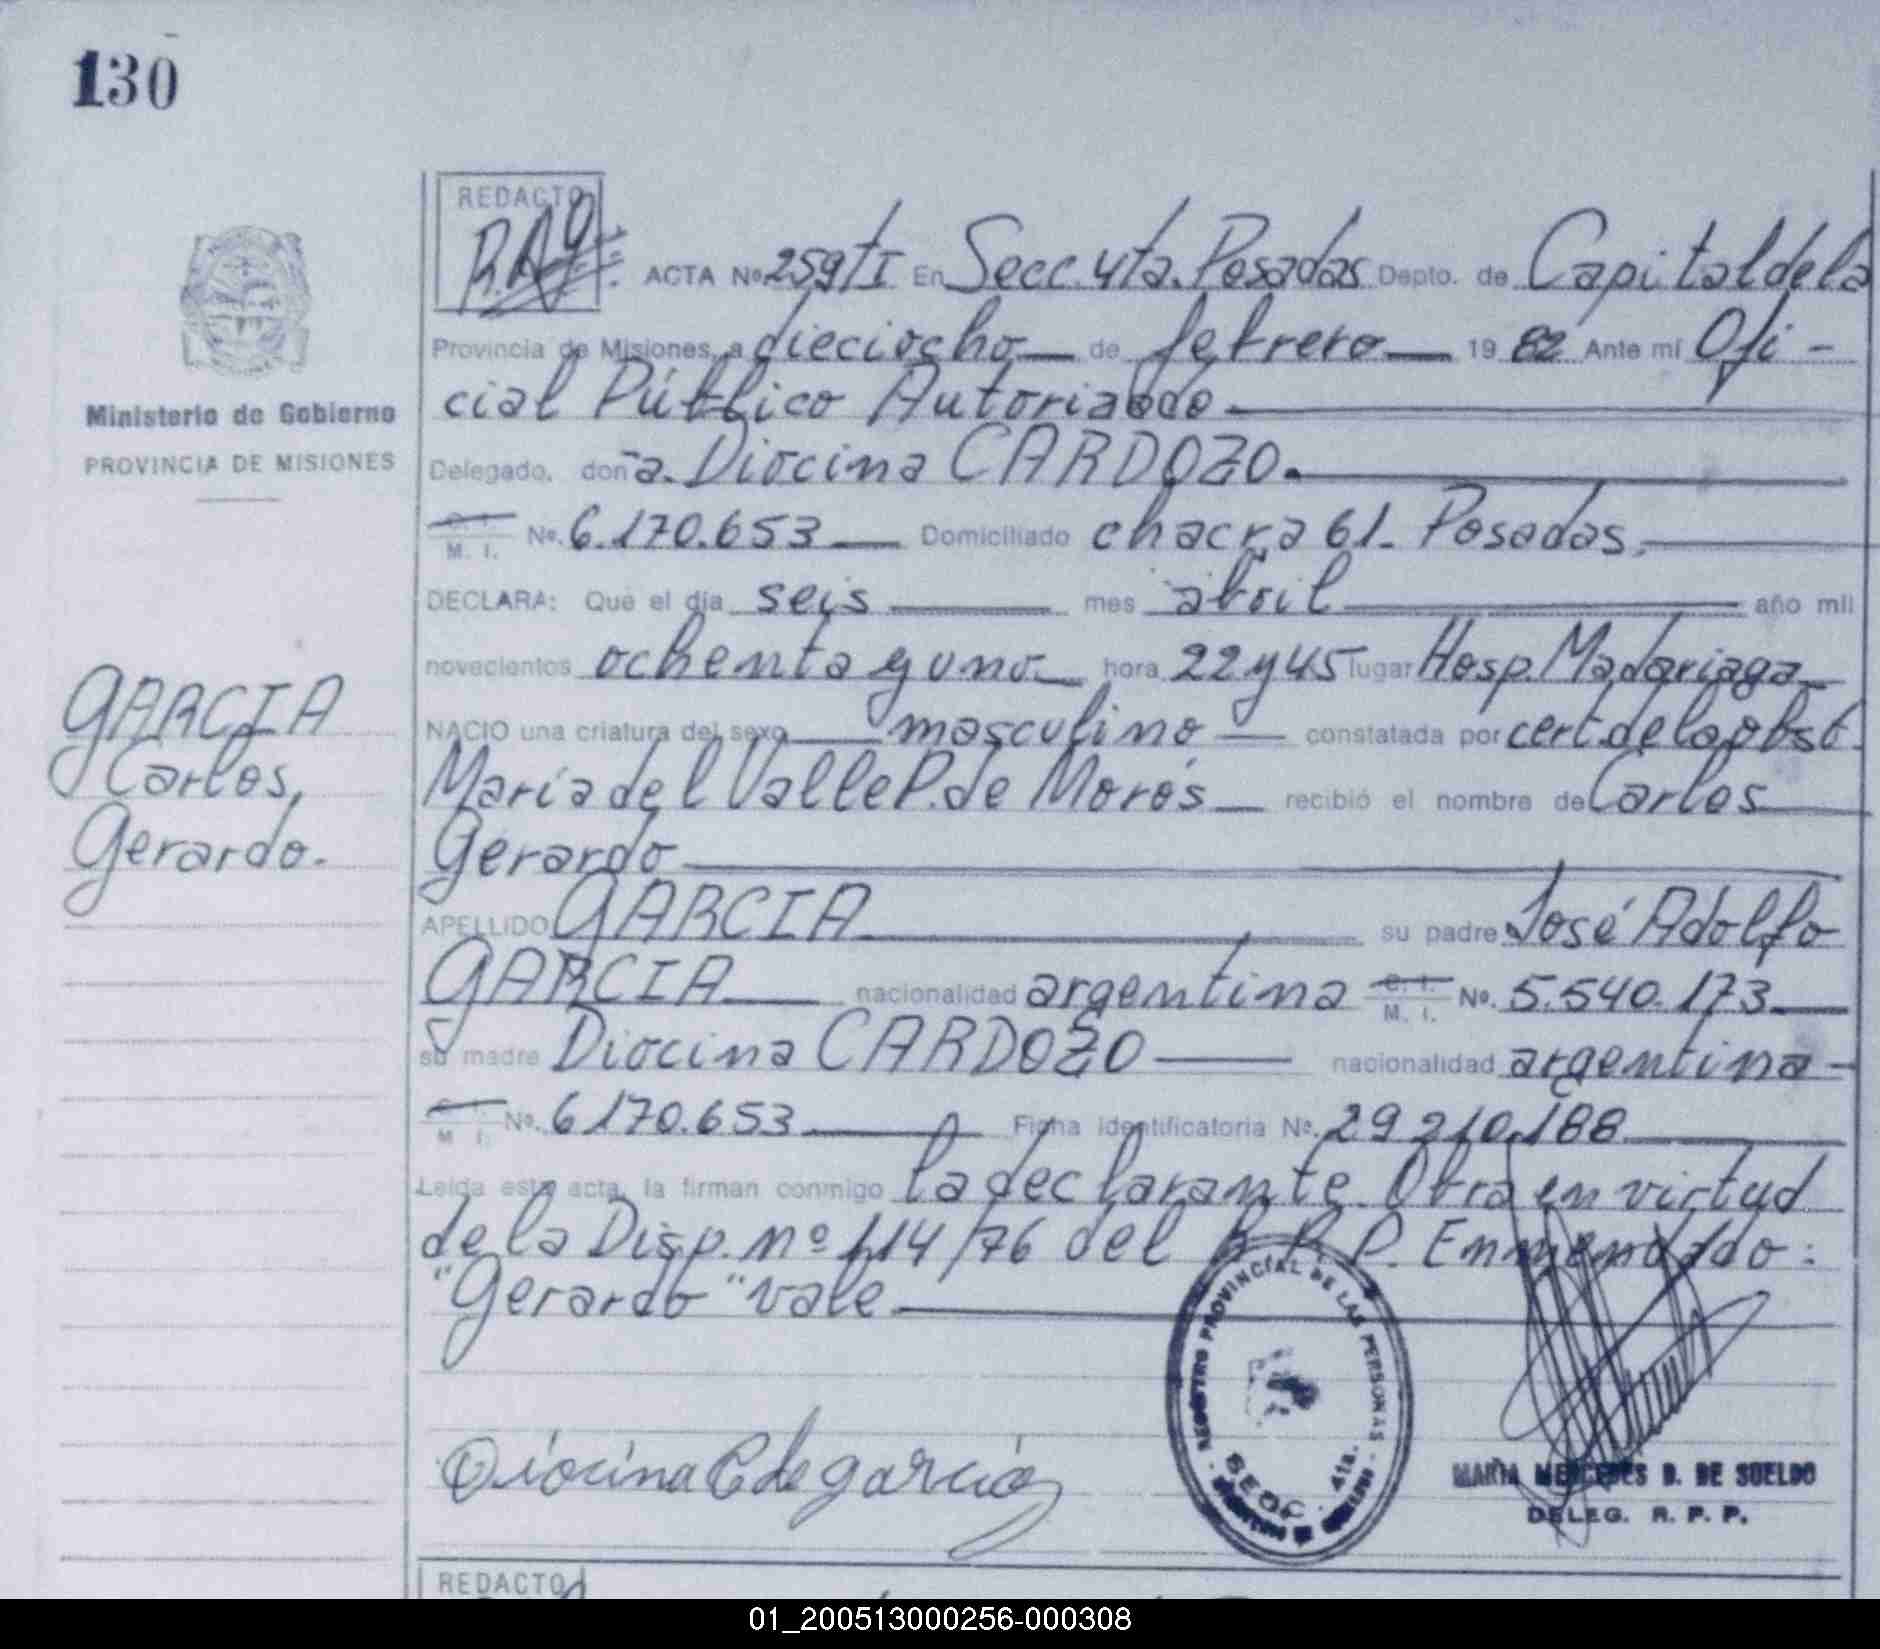 130
REDACTO
ACTA Nº 259 tI En Secc. 4ta. Posadas Depto. de Capital de la
Provincia de Misiones, a dieciocho de febrero 19 82 Ante mí Ofi-
cial Público Autorizado
Ministerio de Gobierno
PROVINCIA DE MISIONES
Delegado, doña. Diocina CARDOZO.
C. I.
M. I. Nº. 6.170.653 Domiciliado chacra 61. Posadas.
DECLARA: Que el día seis mes abril año mil
novecientos ochenta y uno hora 22 y 45 lugar Hosp. Madariaga
NACIO una criatura del sexo masculino constatada por cert. de la obst.
María del Valle P. de Morós recibió el nombre de Carlos
Gerardo
GARCIA
Carlos,
Gerardo.
APELLIDO GARCIA su padre José Adolfo
GARCIA nacionalidad argentina C. I. M. I. Nº. 5.540.173
su madre Diocina CARDOZO nacionalidad argentina
M. I. Nº. 6170.653 Ficha identificatoria Nº. 29 210.188
Leída esta acta, la firman conmigo la declarante. Obra en virtud
de la Disp. nº 114/76 del R. P. P. Enmendado:
"Gerardo" vale
REGISTRO PROVINCIAL DE LAS PERSONAS
SECC. 4ta.
Diocina C de garcia
MARIA MERCEDES D. DE SUELDO
DELEG. R. P. P.
REDACTO
01_200513000256-000308